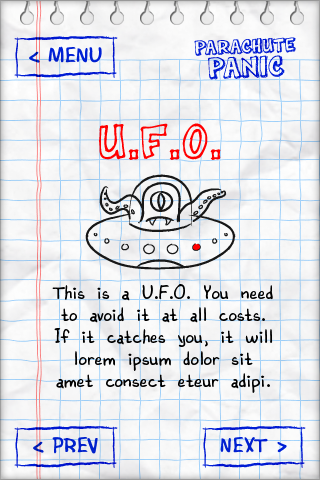 < MENU
PARACHUTE
PANIC
U.F.O.
This is a U.F.O. You need
to avoid it at all costs.
If it catches you, it will
lorem ipsum dolor sit
amet consect eteur adipi.
< PREV
NEXT >